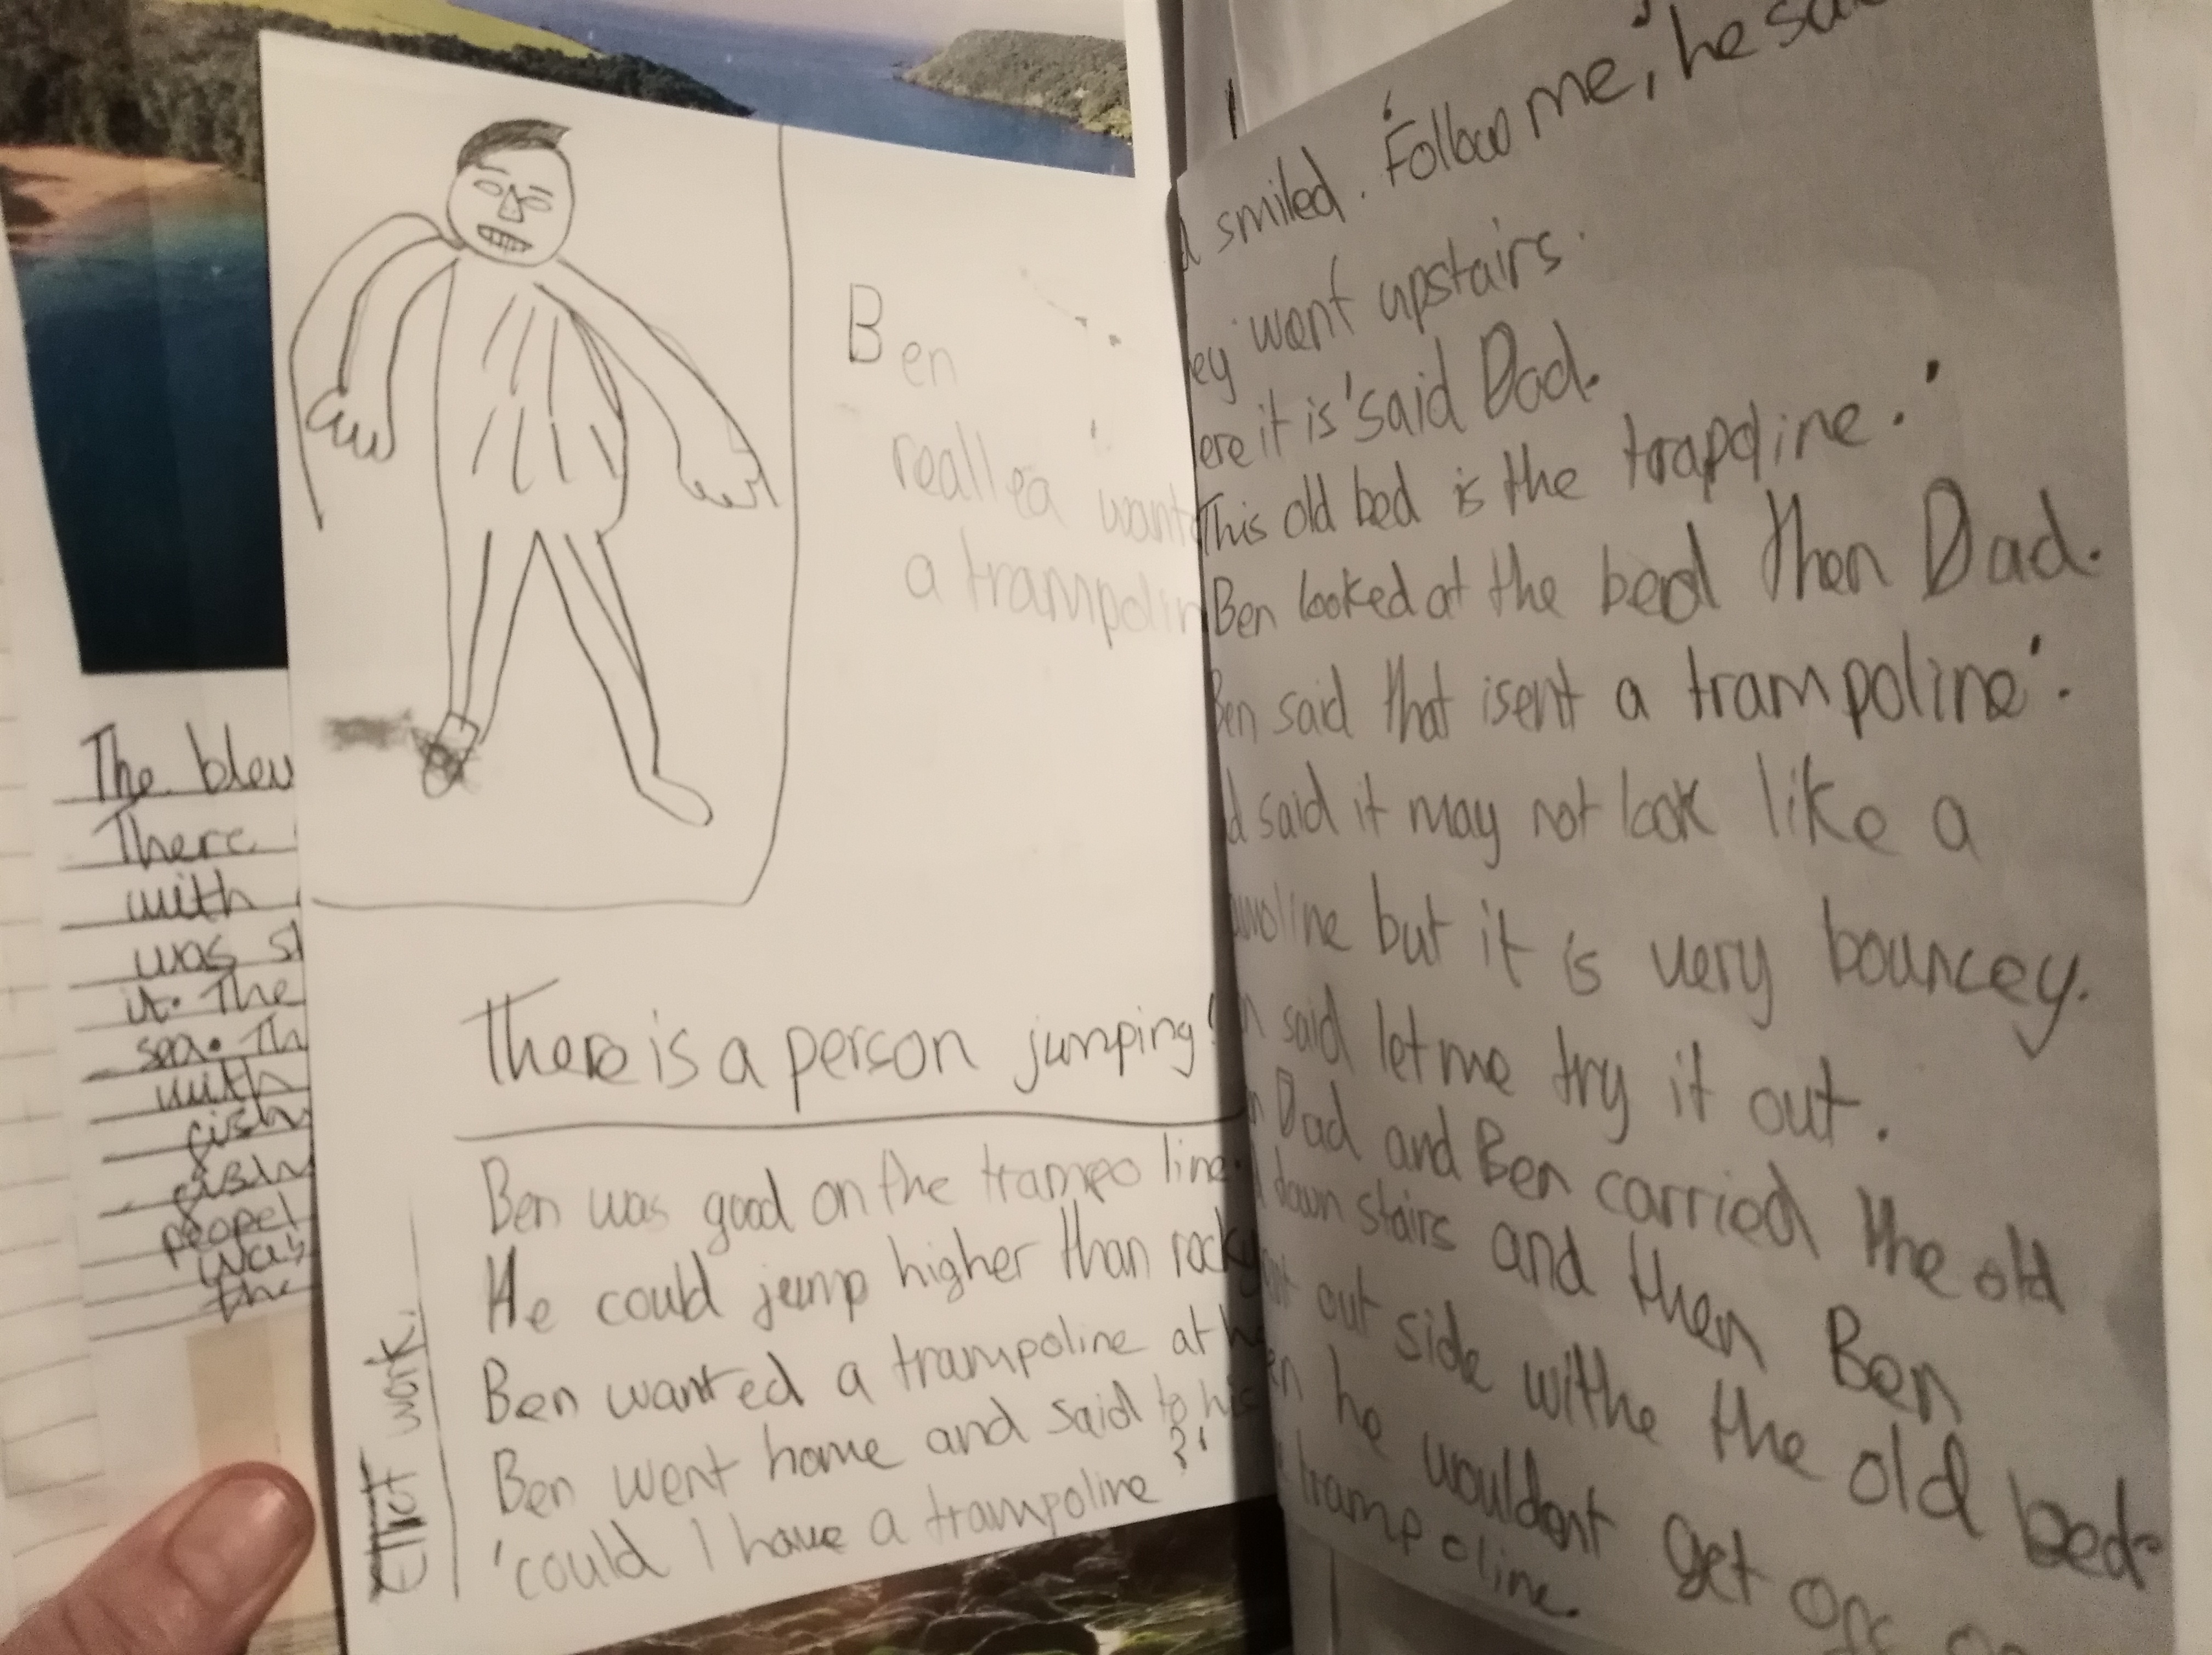 Ben
reallea want
a trampolin
There is a person jumping!
Ben was good on the trampo line.
He could jump higher than rocky
Ben wanted a trampoline at
Ben went home and said to his
'could I have a trampoline ?'
Elliot work.
smiled. 'Follow me', he
went upstairs.
it is 'said Dad.
This old bed is the trapoline.'
Ben looked at the bed then Dad.
Ben said that isent a trampoline'.
said it may not look like a
but it is very bouncey.
said let me try it out.
Dad and Ben carried the old
down stairs and then Ben
out side withe the old bed.
he wouldent get off
trampoline.
The blew
There
with
was
it. The
sea. Th
with
fishy
peopel
was
the